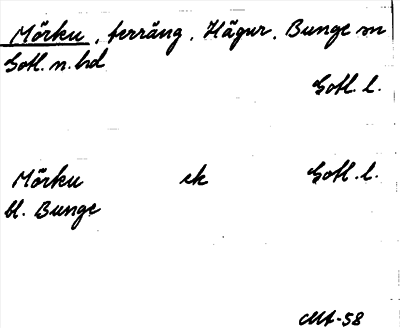 Mörku, terräng, Hägur, Bunge sn
Gotl. n. hd
Gotl. l.
Mörku ek Gotl. l.
bl. Bunge
MA-58